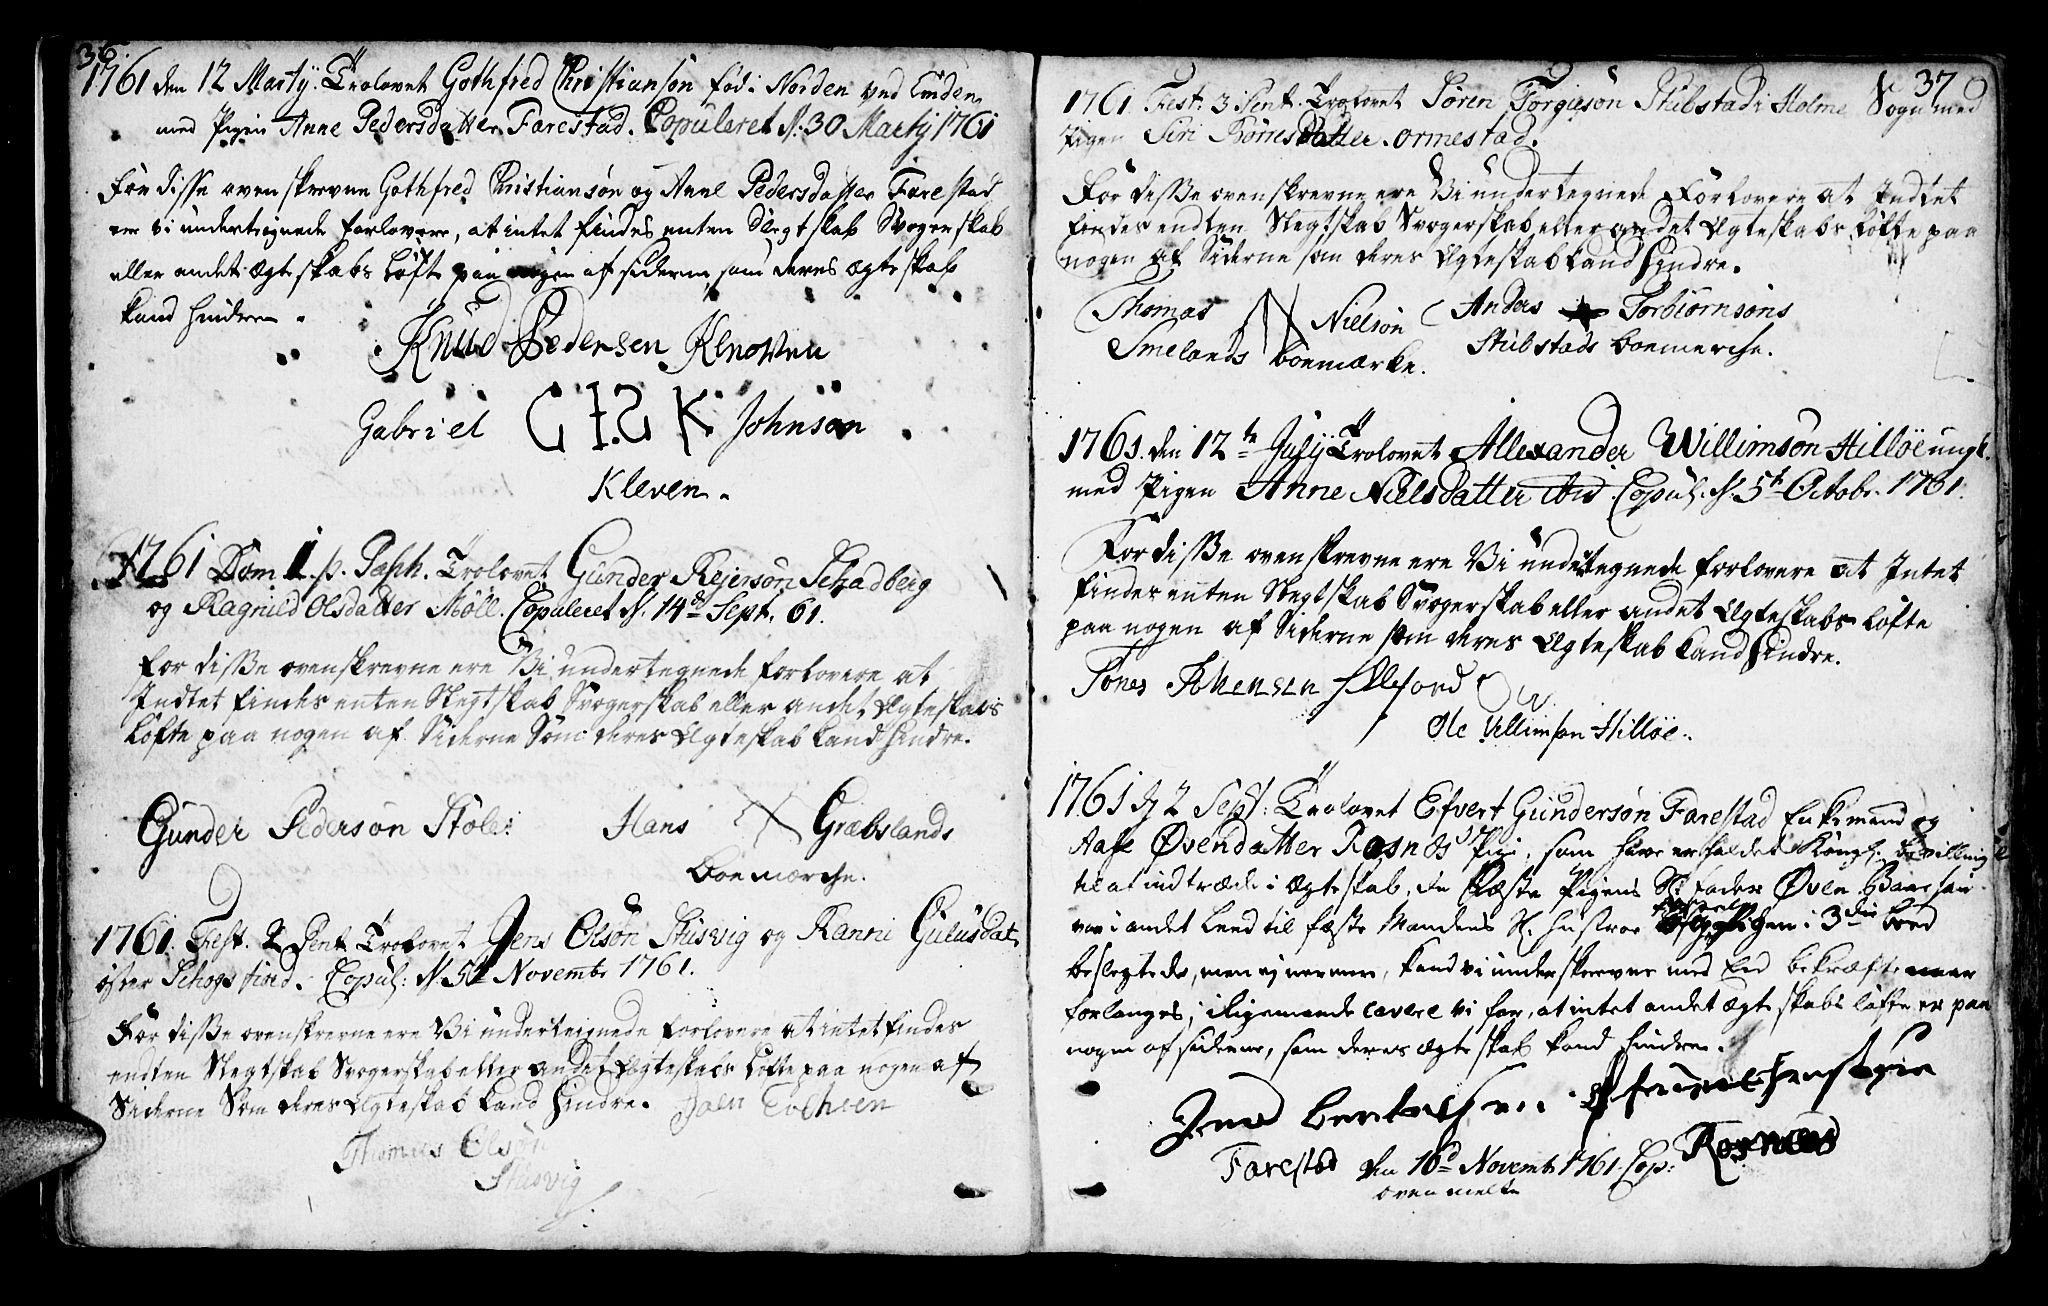 36.
1761 den 12 Martÿ. Trolovet Gothfred Christiansön, föd i Norden ved Emden
med Pigen Anne Pedersdatter Farestad. Copuleret d. 30 Martÿ 1761
For disse ovenskrevne Gothfred Christiansön og Anne Pedersdatter Farestad
ere vi undertegnede forlovere, at intet findes enten Slegtskab Svogerskab
eller andet ægteskabs Løfte paa nogen af siderne, som deres ægteskab
kand hindre.
Knud Pedersen Klewen
Gabriel G I S K Johnsön
Kleven.
1761 Dom 1. p. Pasch. Trolovet Gunder Rejersön Schadberg
og Ragnild Olsdatter Möll. Copuleret d. 14de Sept. 61.
for disse ovenskrevne ere Vi undertegnede forlovere at
Indtet findes enten Slegtskab Svogerskab eller andet Ægteskabs
Löfte paa nogen af Siderne Som deres Ægteskab kand hindre.
Gunder Pedersön Stöle: Hans Græbslands
boemærche.
1761. Fest. 2 Pent. Trolovet Jens Olsön Stusvig og Ranni Gulusdat.
öster Schogsfiord. Copul: d. 5te Novembr 1761.
For disse ovenskrevne ere Vi underteignede forlovere at intet findes
endten Slegtskab Svogerskab eller andet Ægteskabs Løfte paa nogen af
Siderne Som deres Ægteskab kand hindre. Joen Evensen
Thomas Olsön
Stusvig
37
1761. Fest. 3 Pent. Trolovet Sören Torgiesön Stubstad i Holme Sogn med
Pigen Siri Börresdatter ormestad.
For disse ovenskrevne ere Vi undertegnede Forlovere at Indtet
findes endten Slegtskab Svogerskab eller andet Ægteskabs Löfte paa
nogen af Siderne som deres Ægteskab kand hindre.
Thomas Nielsön Anders Torbiörnsöns
Smelands boemærke. Stubstads boemerche.
1761. den 12te Julÿ Trolovet Allexander Willimsön Hillöe ungk.
med Pigen Anne Nielsdatter Copul. d. 5te Octobr. 1761.
For disse ovenskrevne ere Vi undertegnede forlovere at Intet
findes enten Slegtskab Svogerskab eller andet Ægteskabs Löfte
paa nogen af Siderne som deres Ægteskab kand hindre.
Tönes
Ole Villimsön Hillöe.
1761 d 2 Sept: Trolovet Efvert Gundersön Farestad Enkemand og
Aase Øvendatter Rosnes Pige, som have erholdet Kongl. bevilling
til at indtræde i ægteskab, da fæste Pigens Sl. Fader Øven
var i andet Leed til fæste Mandens Sl. hustroe i 3die Leed
beslegtede, men ej nermere, kand vi underskrevne med Eed bekræfte naar
forlanges, iligemaade cavere vi for, at intet andet ægteskabs løfte er paa
nogen af siderne, som deres ægteskab kand hindre.
Farestad
Rosnes
den 10d Novembr 1761. Cop:
ovenmelte